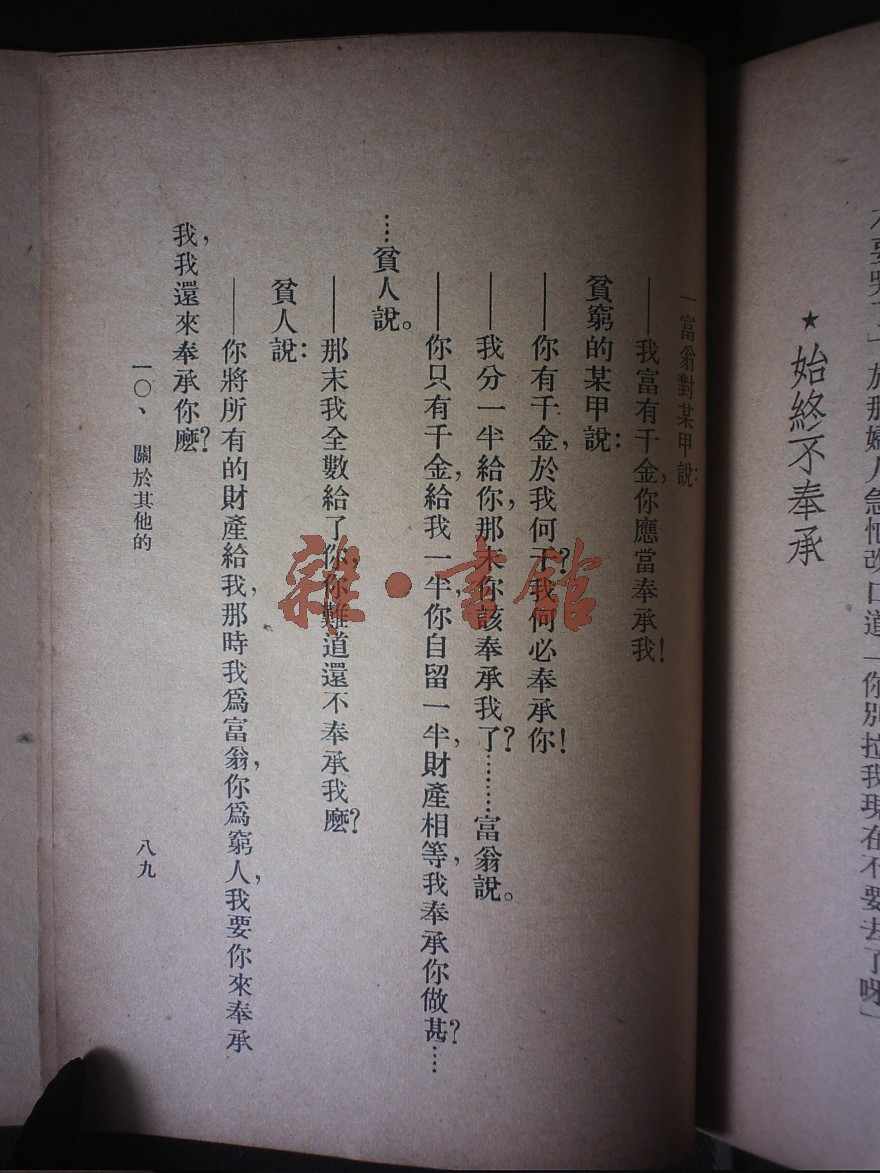 於那婦人急忙改口道「你別拉我現在不要去了呀」
★始終不奉承
一富翁對某甲說：
——我富有千金，你應當奉承我！
貧窮的某甲說：
——你有千金，於我何干？我何必奉承你！
——我分一半給你，那末你該奉承我了？………富翁說。
——你只有千金，給我一半，你自留一半，財產相等，我奉承你做甚？……
…貧人說。
——那末我全數給了你，你難道還不奉承我麽？
貧人說：
——你將所有的財產給我，那時我爲富翁，你爲窮人，我要你來奉承
我，我還來奉承你麽？
一〇、關於其他的
八九
雜·書館